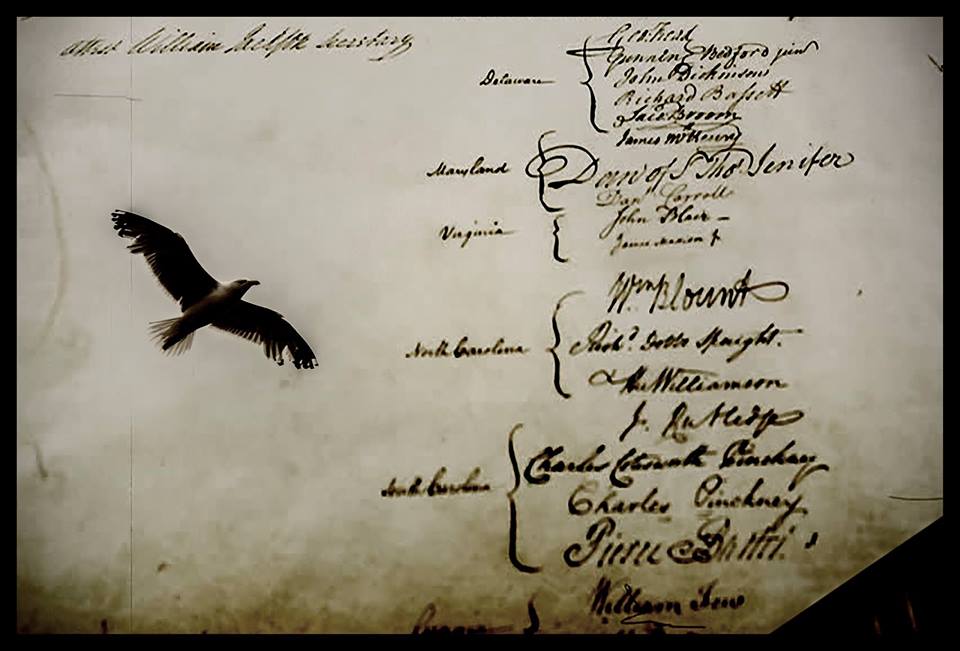 attest William Jackson Secretary
Geo: Read
Gunning Bedford jun
Delaware
John Dickinson
Richard Bassett
Jaco: Broom
James McHenry
Maryland
Dan of St Thos Jenifer
Danl Carroll
John Blair —
Virginia
James Madison Jr
Wm Blount
North Carolina
Richd Dobbs Spaight.
Hu Williamson
J. Rutledge
South Carolina
Charles Cotesworth Pinckney
Charles Pinckney
Pierce Butler.
William Few
Georgia